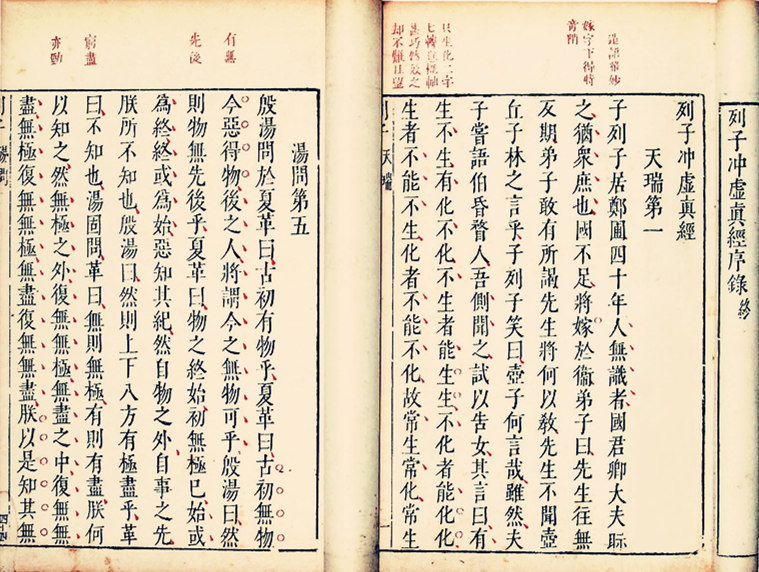 列子冲虛真經序錄 終
列子冲虛真經
天瑞第一
子列子居鄭圃四十年人無識者國君卿大夫眎
之猶衆庶也國不足將嫁於衞弟子曰先生往無
反期弟子敢有所謁先生將何以敎先生不聞壺
丘子林之言乎子列子笑曰壺子何言哉雖然夫
子嘗語伯昏瞀人吾側聞之試以告女其言曰有
生不生有化不化不生者能生生不化者能化化
生者不能不生化者不能不化故常生常化常
列子 天瑞
嫁字下得特
只生化二字
却不
湯問第五
殷湯問於夏革曰古初有物乎夏革曰古初無物
今惡得物後之人將謂今之無物可乎殷湯曰然
則物無先後乎夏革曰物之終始初無極已始或
爲終終或爲始惡知其紀然自物之外自事之先
朕所不知也殷湯曰然則上下八方有極盡乎革
曰不知也湯固問革曰無則無極有則有盡朕何
以知之然無極之外復無無極無盡之中復無無
盡無極復無無極無盡復無無盡朕以是知其無
有無
先後
窮盡